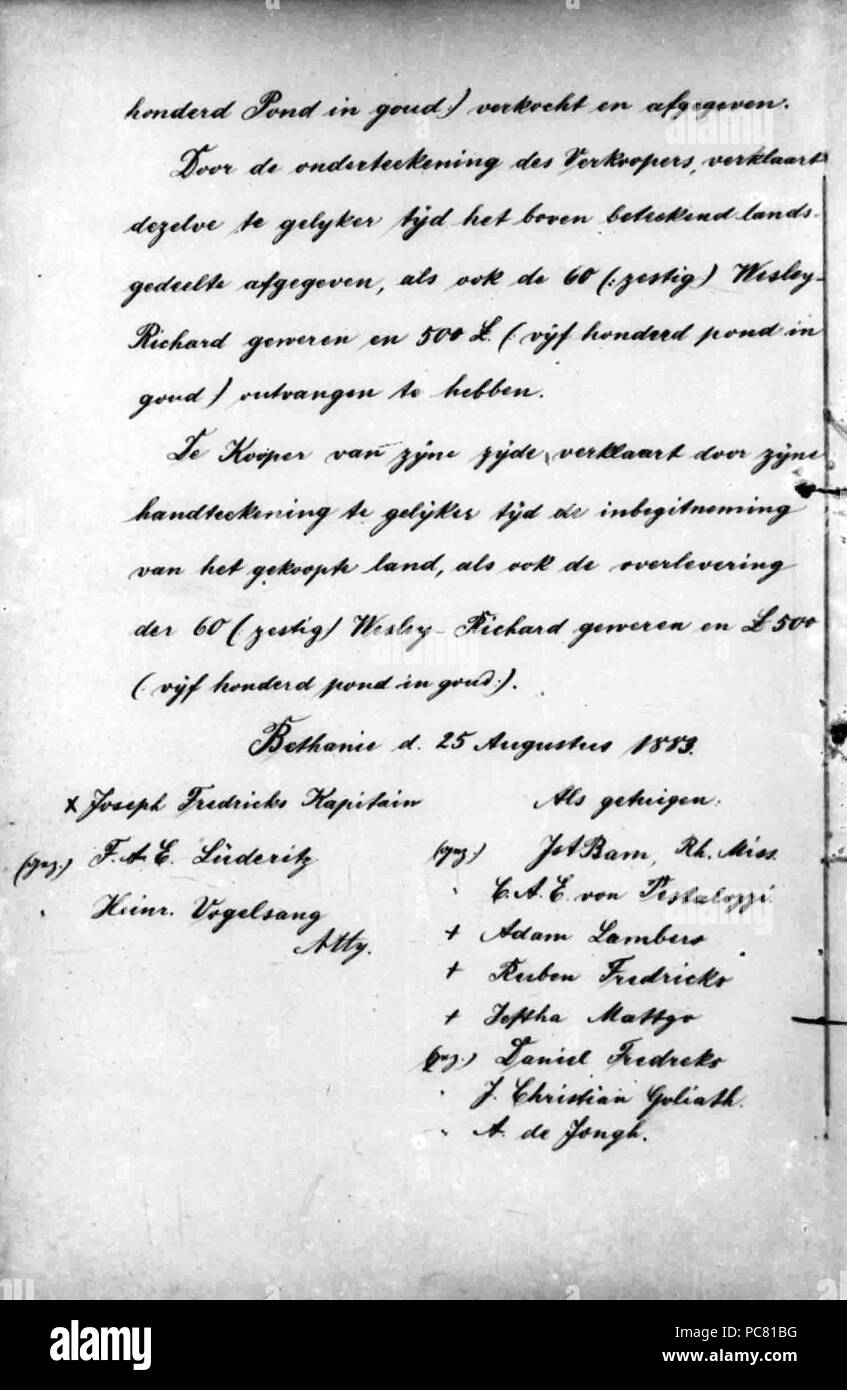 honderd Pond in goud.) verkocht en afgegeven.
Door de onderteekening des Verkoopers, verklaart
dezelve te gelyker tÿd het boven beteekend lands-
gedeelte afgegeven, als ook de 60 (: zestig) Wesley-
Richard geweren en 500 £. (: vÿf honderd pond in
goud) ontvangen te hebben.
De Kooper van zÿne zÿde, verklaart door zÿne
handteekening te gelÿker tÿd de inbegitneming
van het gekoopte land, als ook de overlevering
der 60 (: zestig) Wesley-Richard geweren en £ 500
(: vÿf honderd pond in goud:).
Bethanie d. 25 Augustus 1883.
x Joseph Fredricks Kapitain
(gez.) F. A. E. Lüderitz
" Heinr. Vogelsang
Atty.
Als getuigen:
(gez.) Bam, Rh. Miss.
" C. A. E. von Pestalozzi
+ Adam Lambers
+ Ruben Fredricks
+ Jeftha Mattgo
(gez.) Daniel Fredreks
" J. Christian Goliath.
" A. de Jongh.
alamy
alamy
alamy
alamy
alamy
Image ID: PC81BG
www.alamy.com